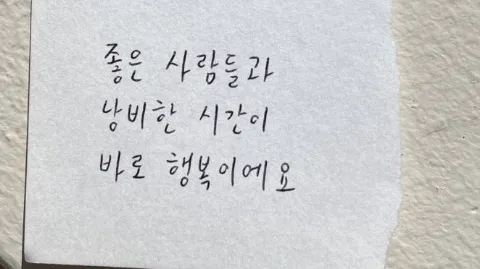 좋은 사람들과
낭비한 시간이
바로 행복이에요